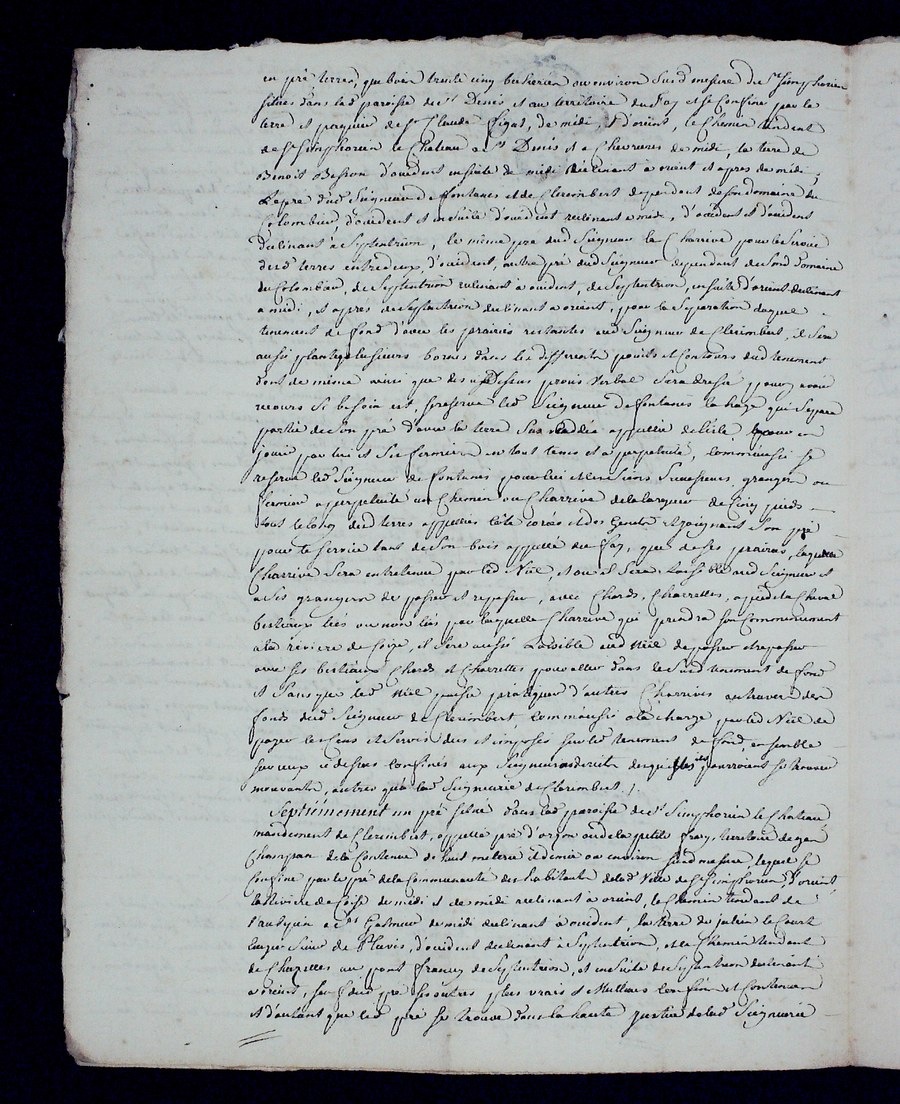 en pré terres, que bois trente cinq bicherées ou environ susd mesure de St Simphorien
situés dans lad paroisse de St Denis et au territoire du fay et se Confine par la
terre et paquier de Sr Claude Pigat, de midi, et d'orient, le Chemin tendant
de St Simphorien le Chateau a St Denis et a Chevrieres de midi, la terre de
Benoit Besson d'occident ensuite de midi déclinant a orient et apres de midi,
Le pré dud Seigneur de fontanes et de Clerimbert dependant de son domaine du
Colombier, d'occident et ensuite d'occident reclinant a midi, d'occident et d'occident
declinant a Septentrion, le même pré dud Seigneur la Charriere pour le Service
desd terres entredeux, d'occident, autre pré dud Seigneur dependant de Sond domaine
du Colombier, de Septentrion reclinant a occident, de Septentrion, ensuite d'orient declinant
a midi, et apres de Septentrion declinant a orient, pour la Separation duquel
tenement de fond d'avec les prairies restantes aud Seigneur de Clerimbert, il Sera
aussi planté plusieurs bornes dans les differents points et Contours dud tenement
dont de même ainsi que des cy dessus procès verbal Sera dressé pour y avoir
recours Si besoin est, se reserve led Seigneur de fontanes la haye qui Separe
partie de Son pré d'avec la terre Sus appellée de l'isle, pour en
jouir par lui et Ses fermiers en tout tems et a perpetuité, Comme aussi se
reserve led Seigneur de fontanes pour lui et les Siens Successeurs, granger ou
fermier a perpetuité un Chemin ou Charriere de la largeur de Cinq pieds
tout le long desd terres appellées Côte et des Genets joignant Son pré
pour le Service tant de Son bois appellé du fay, que de Ses prairies, laquelle
Charriere Sera entretenue par led Niel, et ou il Sera Loisible aud Seigneur et
a Ses grangers de passer et repasser, avec Chards, Charrettes, a pied a Cheval
bestiaux liés ou non liés par laquelle Charriere qui prendra Son Commencement
a la riviere de Coize, il Sera aussi Loisible aud Niel de passer et repasser
avec Ses bestiaux Chards et Charettes pour aller dans le Susd tenement de fond
et Sans que led Niel puisse pratiquer d'autres Charrieres au travers des
fonds dud Seigneur de Clerimbert Comme aussi a la Charge par led Niel de
payer les Cens et Servis dus et imposés Sur led tenement de fond, ensemble
Sur ceux ci dessus Confinés aux Seigneurs directs desquels ils pourroient Se trouver
mouvants, autres qu'a la Seigneurie de Clerimbert.
Septièmement un pré Situé dans lad paroisse de St Simphorien le Chateau
mandement de Clerimbert, appellé pré d'arzon ou de la petite fray, territoire de
Champan de la Contenue de huit meterée et demie ou environ susd mesure, lequel se
Confine par le pré de la Communauté des habitants de lad Ville de St Simphorien, d'orient
la Riviere de Coise de midi et de midi reclinant a orient, le Chemin tendant de
l'aubepin a St Galmier de midi declinant a occident, la terre de julien le Court
de Pluvis, d'occident declinant a Septentrion, et le Chemin tendant
de Chazelles au pont français de Septentrion, et ensuite de Septentrion declinant
a orient, Sauf dud pré Ses autres plus vrais et Meilleurs Confins et Contenue
et d'autant que led pré se trouve dans la haute justice de lad Seigneurie